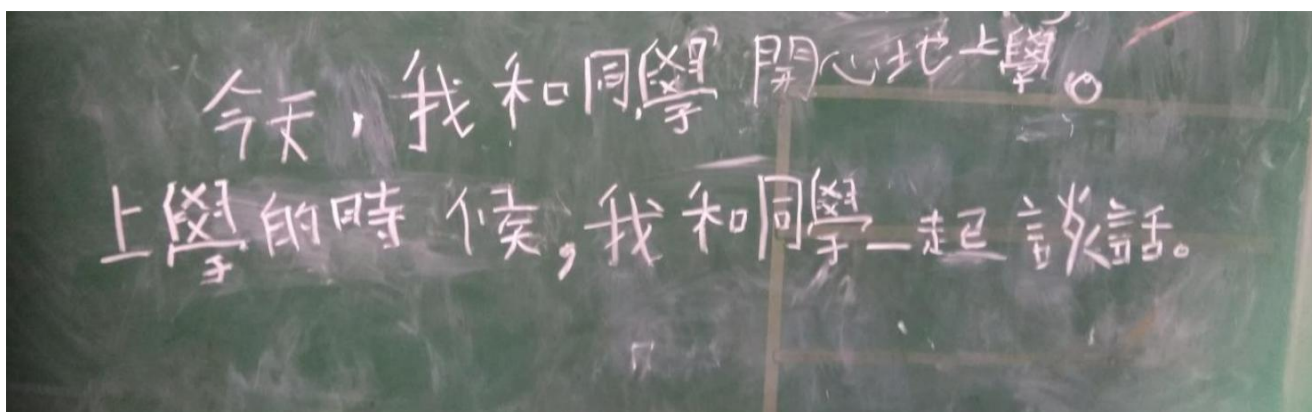 今天，我和同學開心地上學。
上學的時候，我和同學一起談話。